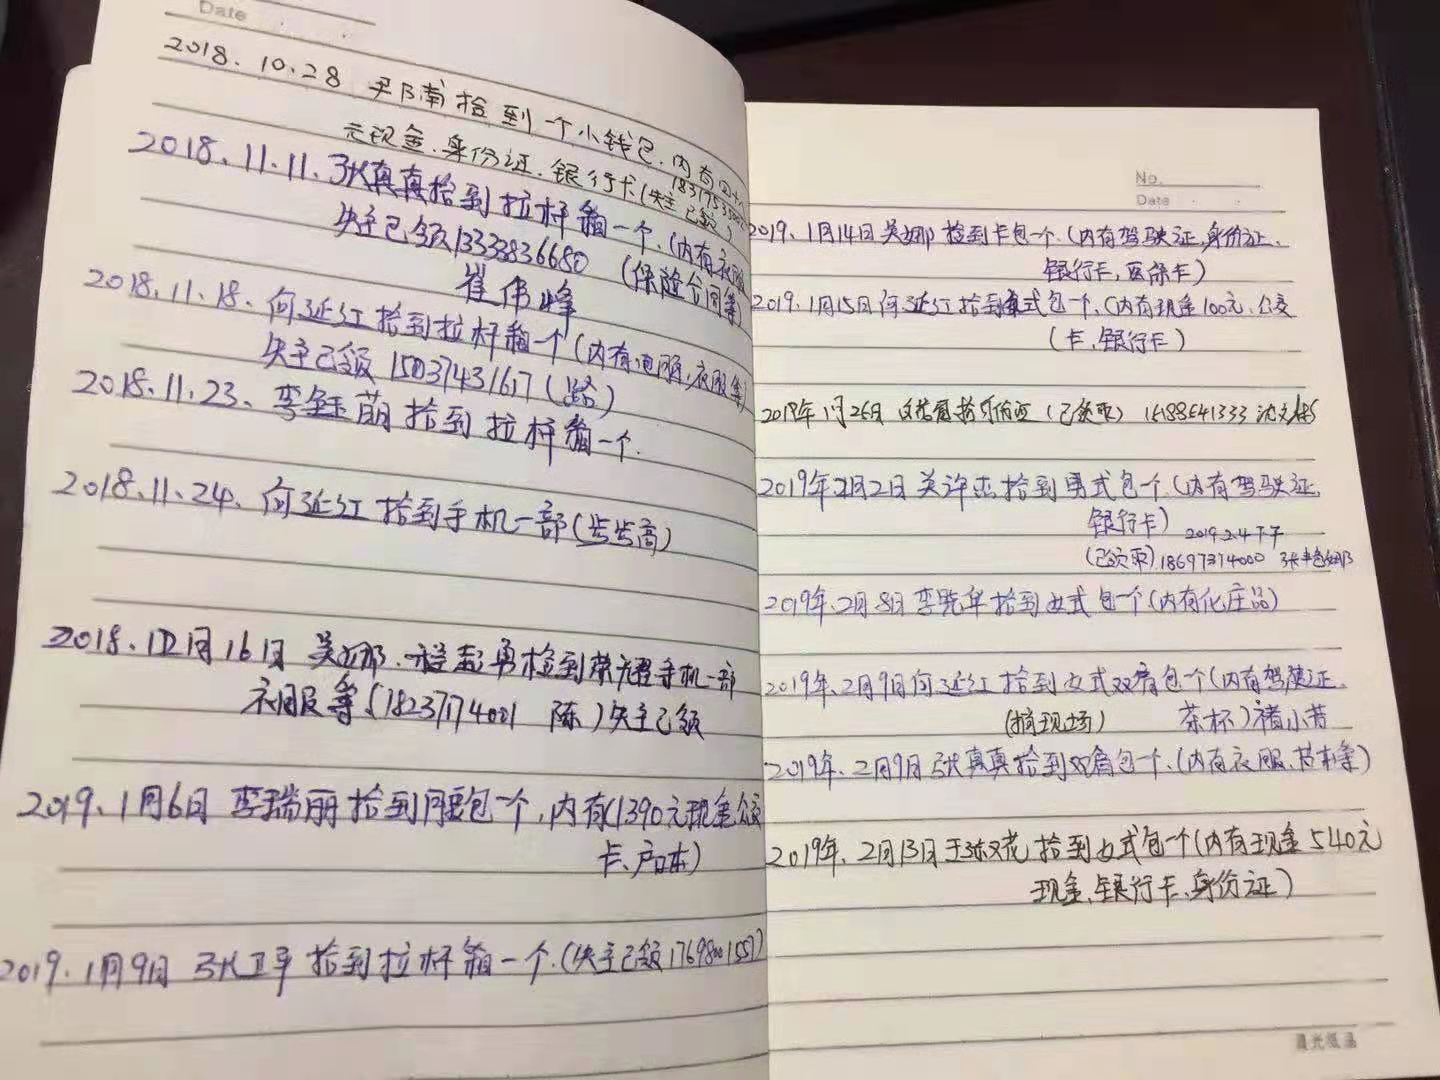 Date
2018.10.28 尹 南拾到一个小钱包.内有四十
元现金.身份证.银行卡(失主已领)
2018.11.11.张真真拾到拉杆箱一个.(内有衣服
失主已领1333836680 (保险合同等)
崔伟峰
2018.11.18.何延红拾到拉杆箱一个(内有电脑,衣服等)
失主已领15037431617(路)
2018.11.23、李钰萌拾到拉杆箱一个.
2018.11.24、何延红拾到手机一部(步步高)
2018.12月16日 吴娜.程彭勇检到荣耀手机一部
衣服等(18237174001 陈)失主已领
2019.1月6日 李瑞丽拾到腰包一个,内有(1390元现金公交
卡、户口本)
2019.1月9日 张卫平拾到拉杆箱一个.(失主已领17698001557)
No.
Date
2019、1月14日吴娜检到卡包一个.(内有驾驶证,身份证、
银行卡,医保卡)
2019.1月15日何延红拾到 式包一个.(内有现金100元.公交
(卡.银行卡)
年1月26日 拾 份证(已领取) 15188541333 沈
2019年2月2日关许杰拾到男式包一个.(内有驾驶证,
银行卡) 2019.2.4下午
(已领取)18697374000 张
2019年.2月8日李晓华拾到女式包一个(内有化庄品)
2019年、2月9日何延红拾到女式双肩包一个(内有驾驶证.
(摘现场) 茶杯)褚小芳
2019年、2月9日张真真拾到双肩包一个.(内有衣服.书本等)
2019年、2月13日于 花拾到女式包一个(内有现金540元
现金、银行卡、身份证)
晨光纸品